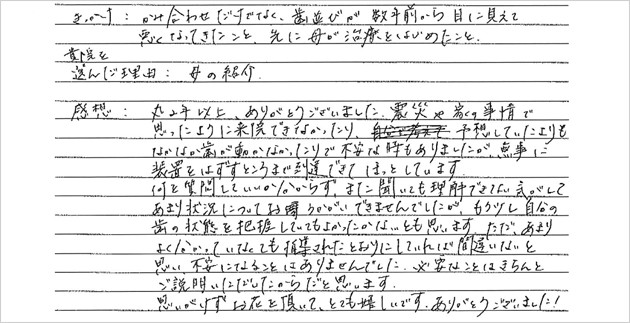 きっかけ：かみ合わせだけでなく、歯並びが数年前から目に見えて
悪くなってきたこと、先に母が治療をはじめたこと。
貴院を
選んだ理由：母の紹介。
感想：丸2年以上、ありがとうございました。震災や家の事情で
思ったように来院できなかったり、予想していたよりも
なかなか歯が動かなかったりで不安な時もありましたが、無事に
装置をはずすところまで到達できてほっとしています。
何を質問していいか分からず、また聞いても理解できてない気がして
あまり状況についてお聞きできませんでしたが、もう少し自分の
歯の状態を把握していてもよかったかな、とも思います。ただ、あまり
よく分かっていなくても指導されたとおりにしていれば間違いないと
思い、不安になることはありませんでした。必要なことはきちんと
ご説明いただいたからだと思います。
思いがけずお花を頂いて、とても嬉しいです。ありがとうございました！